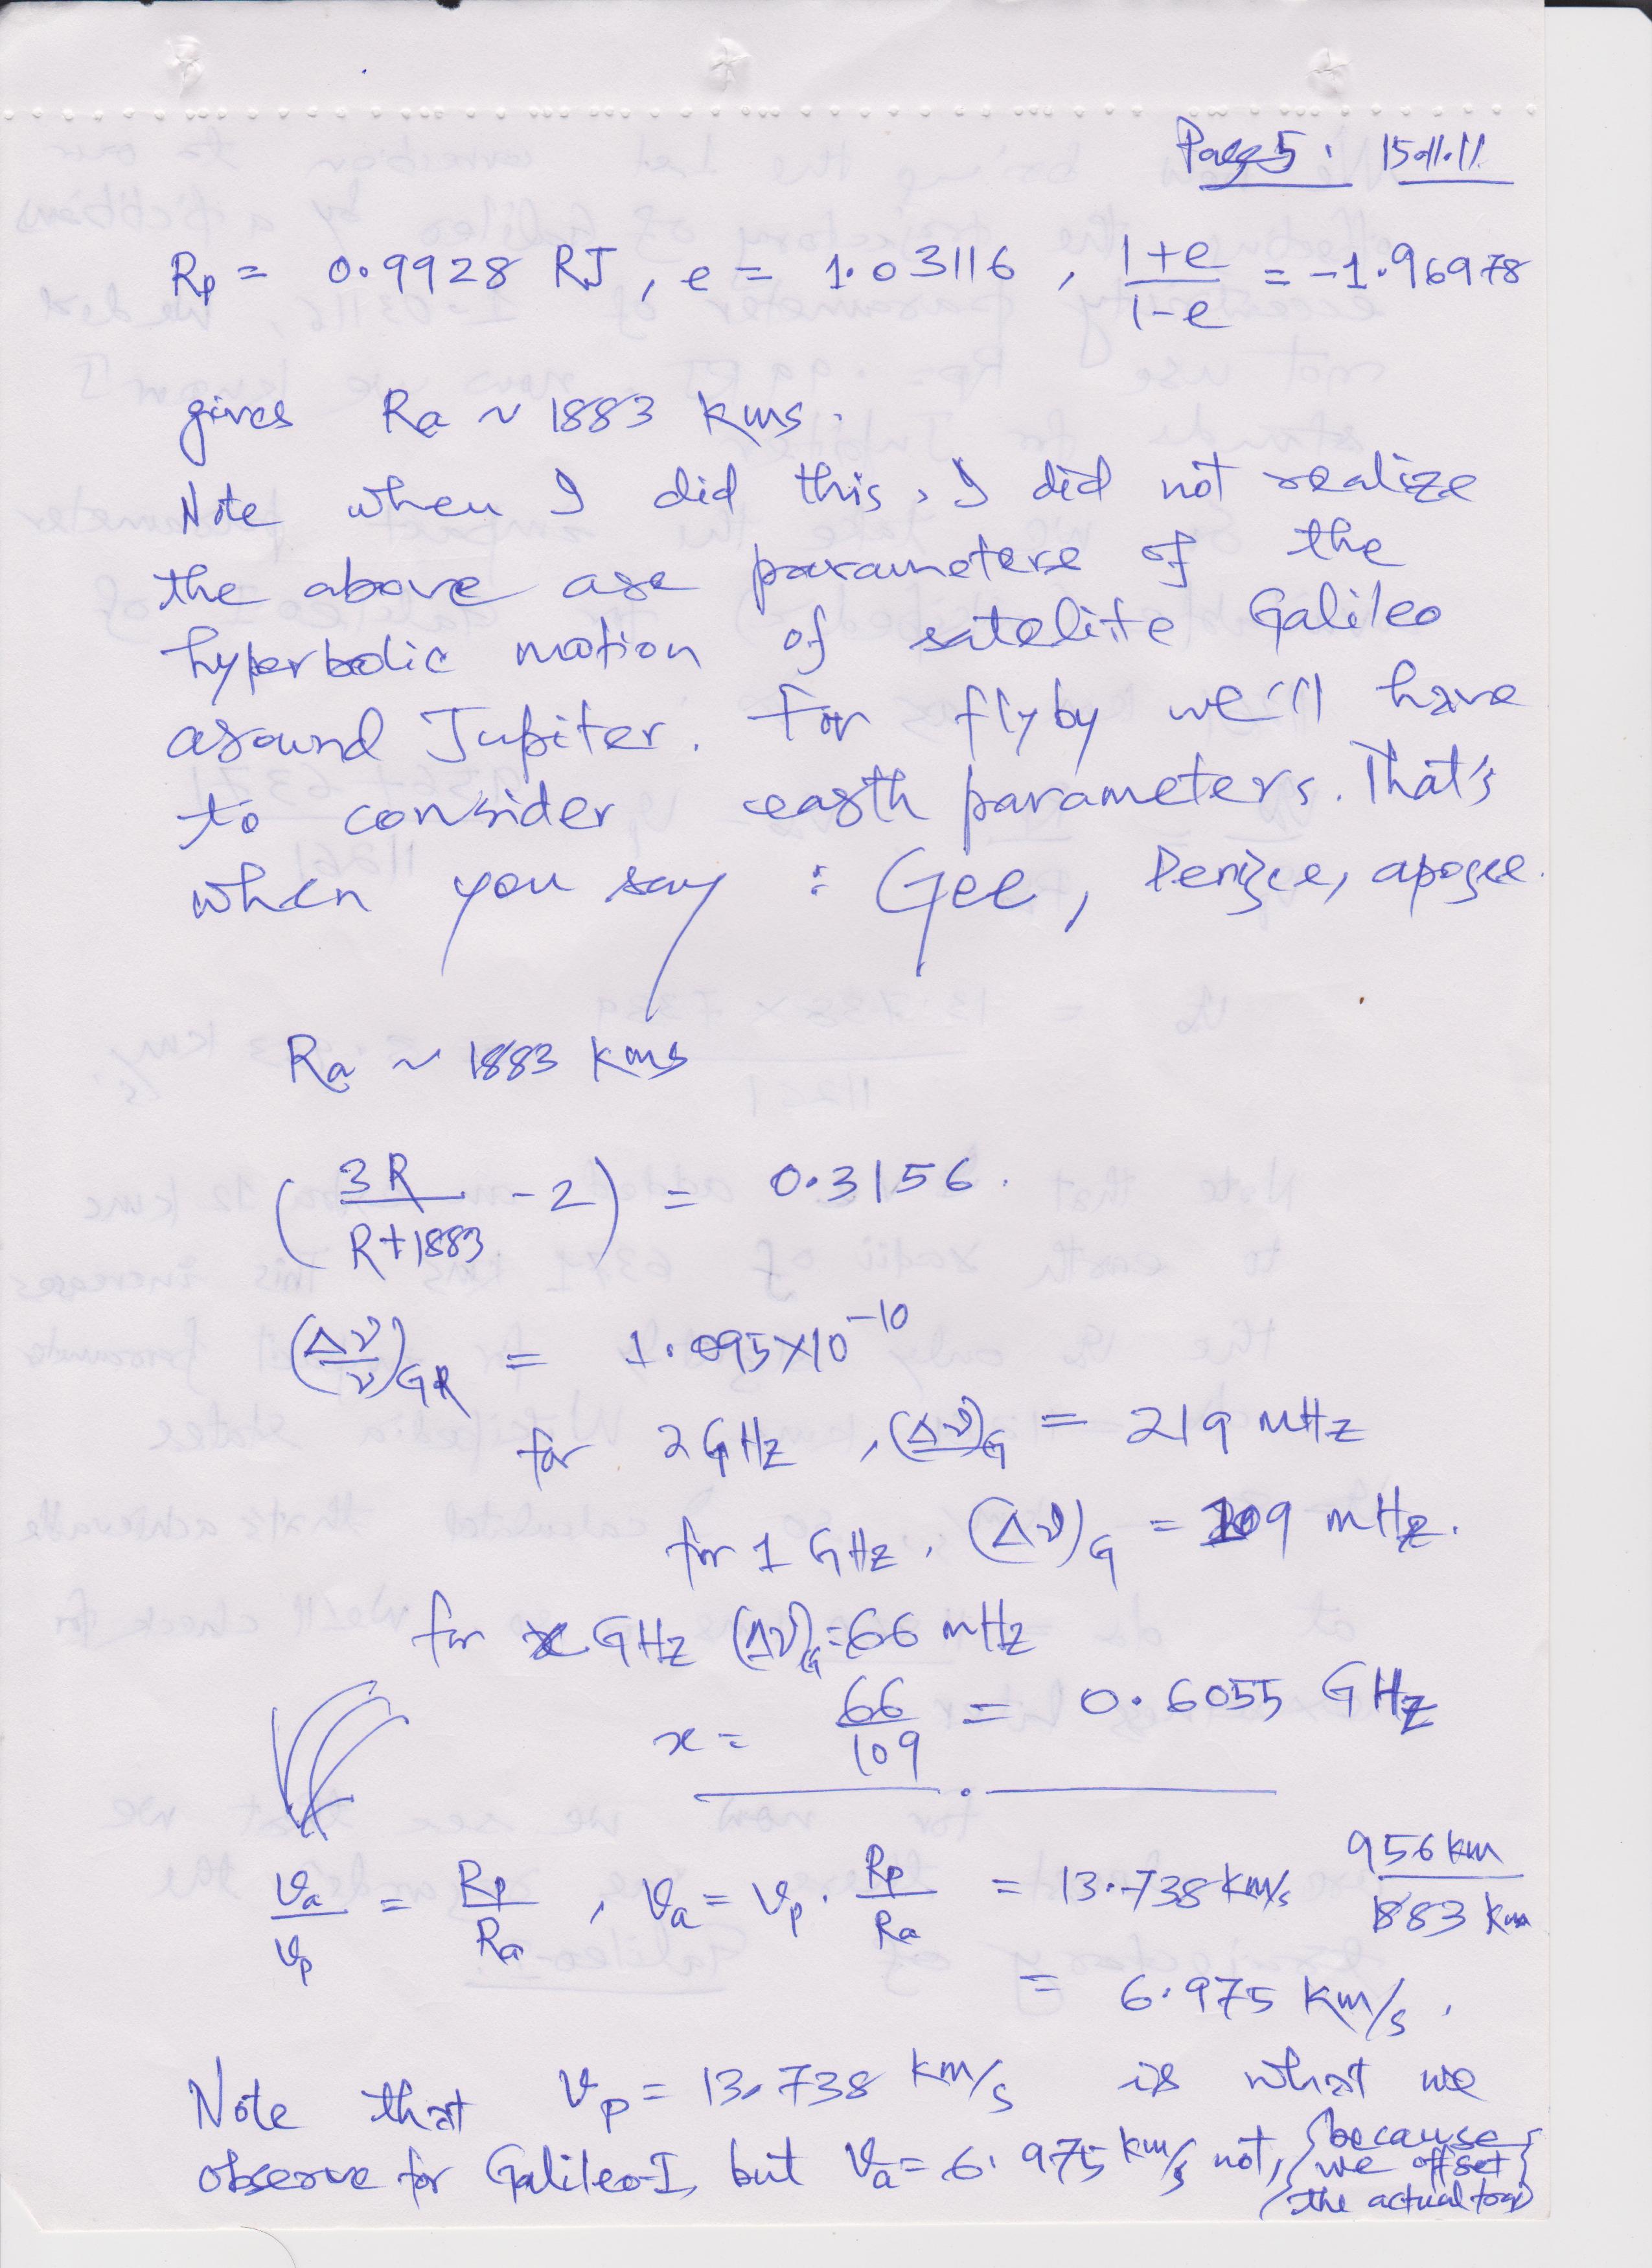 Page 5 : 15.11.11
Rp = 0.9928 RJ , e = 1.03116 , (1+e)/(1-e) = -1.96978
gives Ra ~ 1883 kms.
Note when I did this, I did not realize
the above are parameters of the
hyperbolic motion of satelite Galileo
around Jupiter. For flyby we'll have
to consider earth parameters. That's
when you say : Gee, Perigee, apogee.
Ra ~ 1883 kms
(3R/(R+1883) - 2) = 0.3156.
(Δν/ν)GR = 1.095×10^-10
for 2 GHz , (Δν)G = 219 mHz
for 1 GHz , (Δν)G = 109 mHz.
for x GHz (Δν)G = 66 mHz
x = 66/109 = 0.6055 GHz
va/vp = Rp/Ra , va = vp . Rp/Ra = 13.738 km/s 956 km/1883 km
= 6.975 km/s .
Note that vp = 13.738 km/s is what we
observe for Galileo-I, but va = 6.975 km/s not, {because
we offset}
the actual